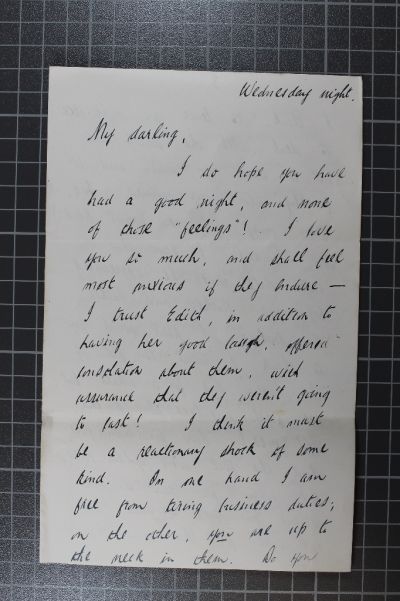 Wednesday night.
My darling,
I do hope you have
had a good night, and none
of those "feelings"! I love
you so much, and shall feel
most anxious if they endure —
I trust Edith, in addition to
having her good laugh, offered
consolation about them, with
assurance that they weren't going
to last! I think it must
be a reactionary shock of some
kind. On one hand I am
free from tiring business duties;
on the other, you are up to
the neck in them. Do you